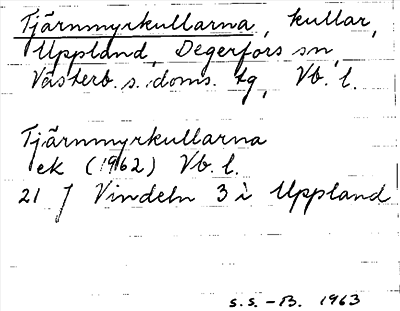 Tjärnmyrkullarna, kullar,
Uppland, Degerfors sn,
Västerb. s. doms. tg, Vb. l.
Tjärnmyrkullarna
ek (1962) Vb. l.
21 J Vindeln 3 i Uppland
S.S.-B. 1963